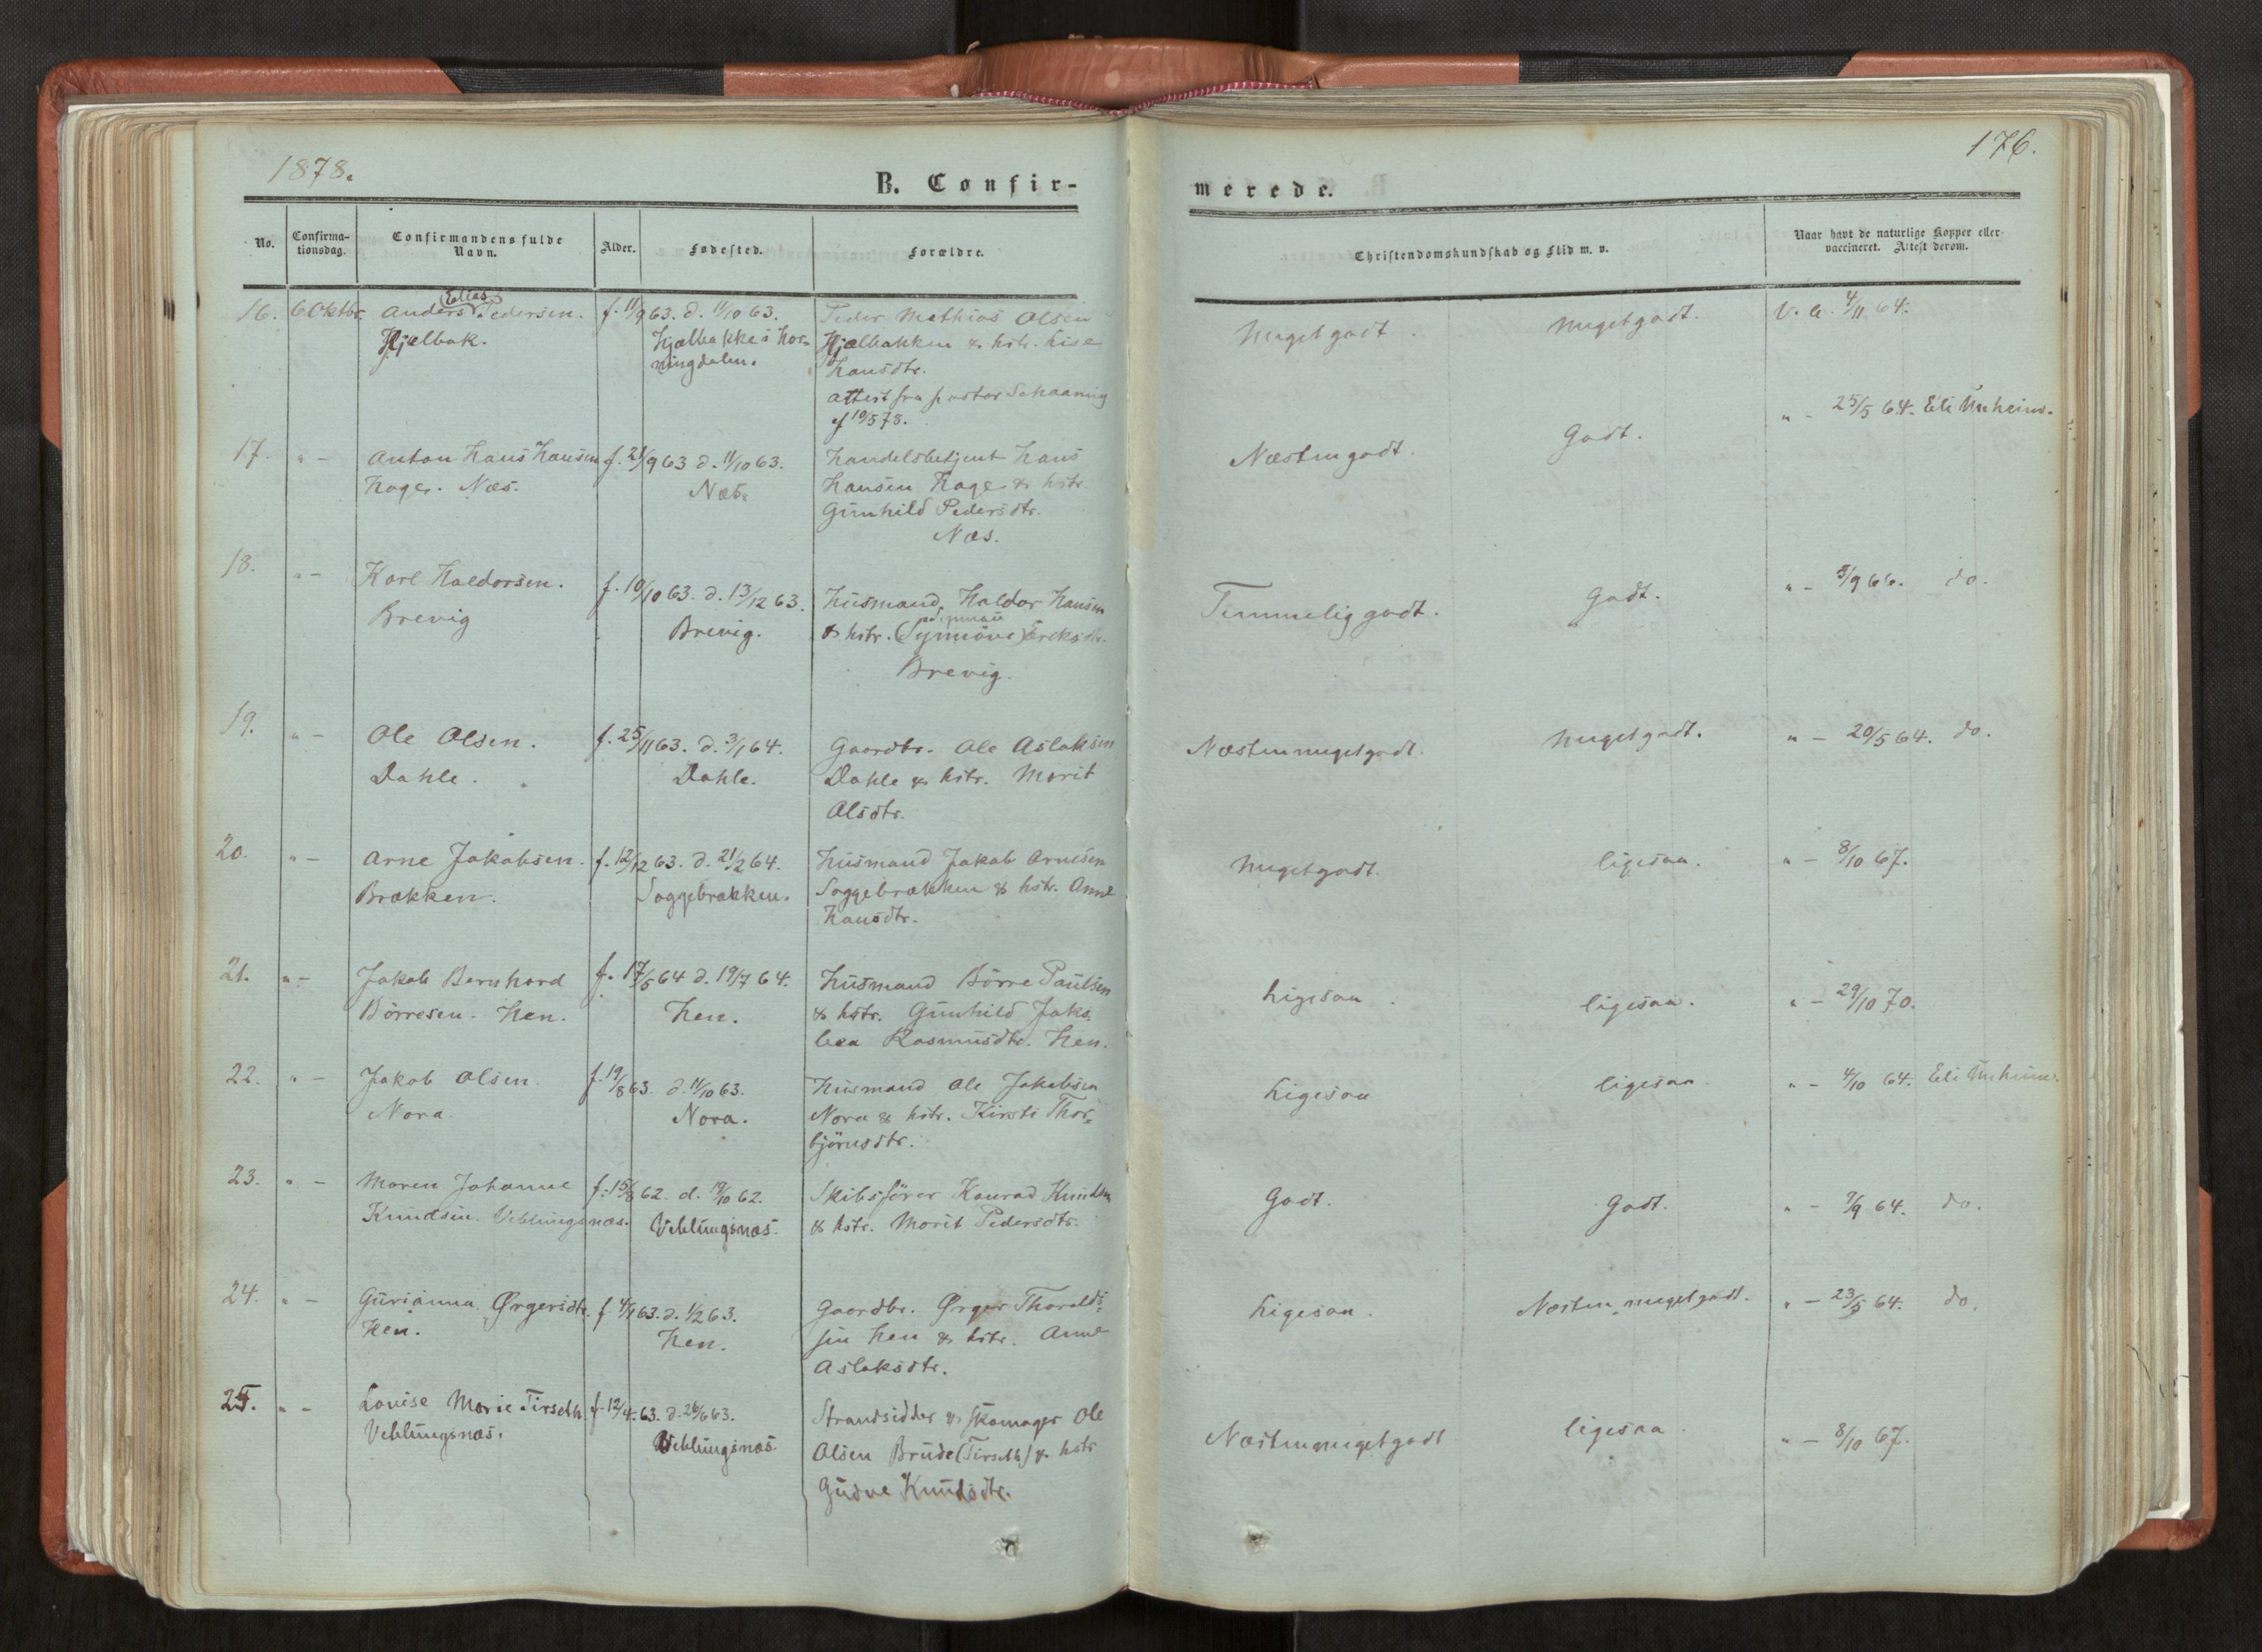 1878.
176.
B. Confir-
merede.
No.
Confirma-
tionsdag.
Confirmandens fulde
Navn.
Alder.
Fødested.
Forældre.
Christendomskundskab og Flid m. v.
Naar havt de naturlige Kopper eller
vaccineret. Attest derom.
16. 6 Oktbr. Anders (Elias) Pedersen. f. 11/9 63. d. 11/10 63. Peder Mathias Olsen
Hjelbak. Hjelbakke i Hor- Hjelbakken & hstr. Lise
ningdalen. Hansdtr.
Attest fra pastor Schaanning
af 10/5 78.
Meget godt. Meget godt. V. a. 4/11 64.
17. " – Anton Hans Hansen f. 21/9 63 d. 11/10 63. Handelsbetjent Hans
Hager. Næs. Næs. Hansen Hage & hstr.
Gunhild Pedersdtr.
Næs.
Næsten godt. Godt. " – 25/5 64. Eli Unheim.
18. " – Karl Haldorsen. f. 10/10 63. d. 13/12 63. Husmand, Haldor Hansen
Brevig Brevig. & hstr. (Synnöve) Ereksdtr.
Brevig.
Temmelig godt. Godt. " – 3/9 66. do.
19. " – Ole Olsen. f. 25/11 63. d. 3/1 64. Gaardbr. Ole Aslaksen
Dahle. Dahle. Dahle & hstr. Marit
Olsdtr.
Næsten meget godt. Meget godt. " – 20/5 64. do.
20. " – Arne Jakobsen. f. 12/12 63. d. 21/2 64. Husmand Jakob Arnesen
Brækken. Soggebrækken. Soggebrækken & hstr. Anne
Hansdtr.
Meget godt. ligesaa. " – 8/10 67.
21. " – Jakob Bernhard f. 17/5 64 d. 19/7 64. Husmand Börre Paulsen
Börresen. Hen. Hen. & hstr. Gunhild Jako-
bea Rasmusdtr. Hen.
Ligesaa. ligesaa. " – 29/10 70.
22. " – Jakob Olsen. f. 19/8 63. d. 11/10 63. Husmand Ole Jakobsen
Nora Nora. Nora & hstr. Kirsti Thor-
björnsdtr.
Ligesaa ligesaa. " – 4/10 64. Eli Unheim.
23. " – Maren Johanne f. 15/8 62. d. 19/10 62. Skibsförer Konrad Knudsen
Knudsen. Veblungsnæs. Veblungsnæs. & hstr. Marit Pedersdtr.
Godt. Godt. " – 7/9 64. do.
24. " – Gurianna Ørgersdtr. f. 4/1 63. d. 1/2 63. Gaardbr. Ørger Thoralds-
Hen. Hen. sen Hen & hstr. Anne
Aslaksdtr.
Ligesaa. Næsten meget godt. " – 23/5 64. do.
25. " – Louise Marie Tirseth f. 12/4 63. d. 26/6 63. Strandsidder & skomager Ole
Veblungsnæs. Veblungsnæs. Olsen Brude (Tirseth) & hstr
Gudve Knudsdtr.
Næsten meget godt ligesaa. " – 8/10 67.